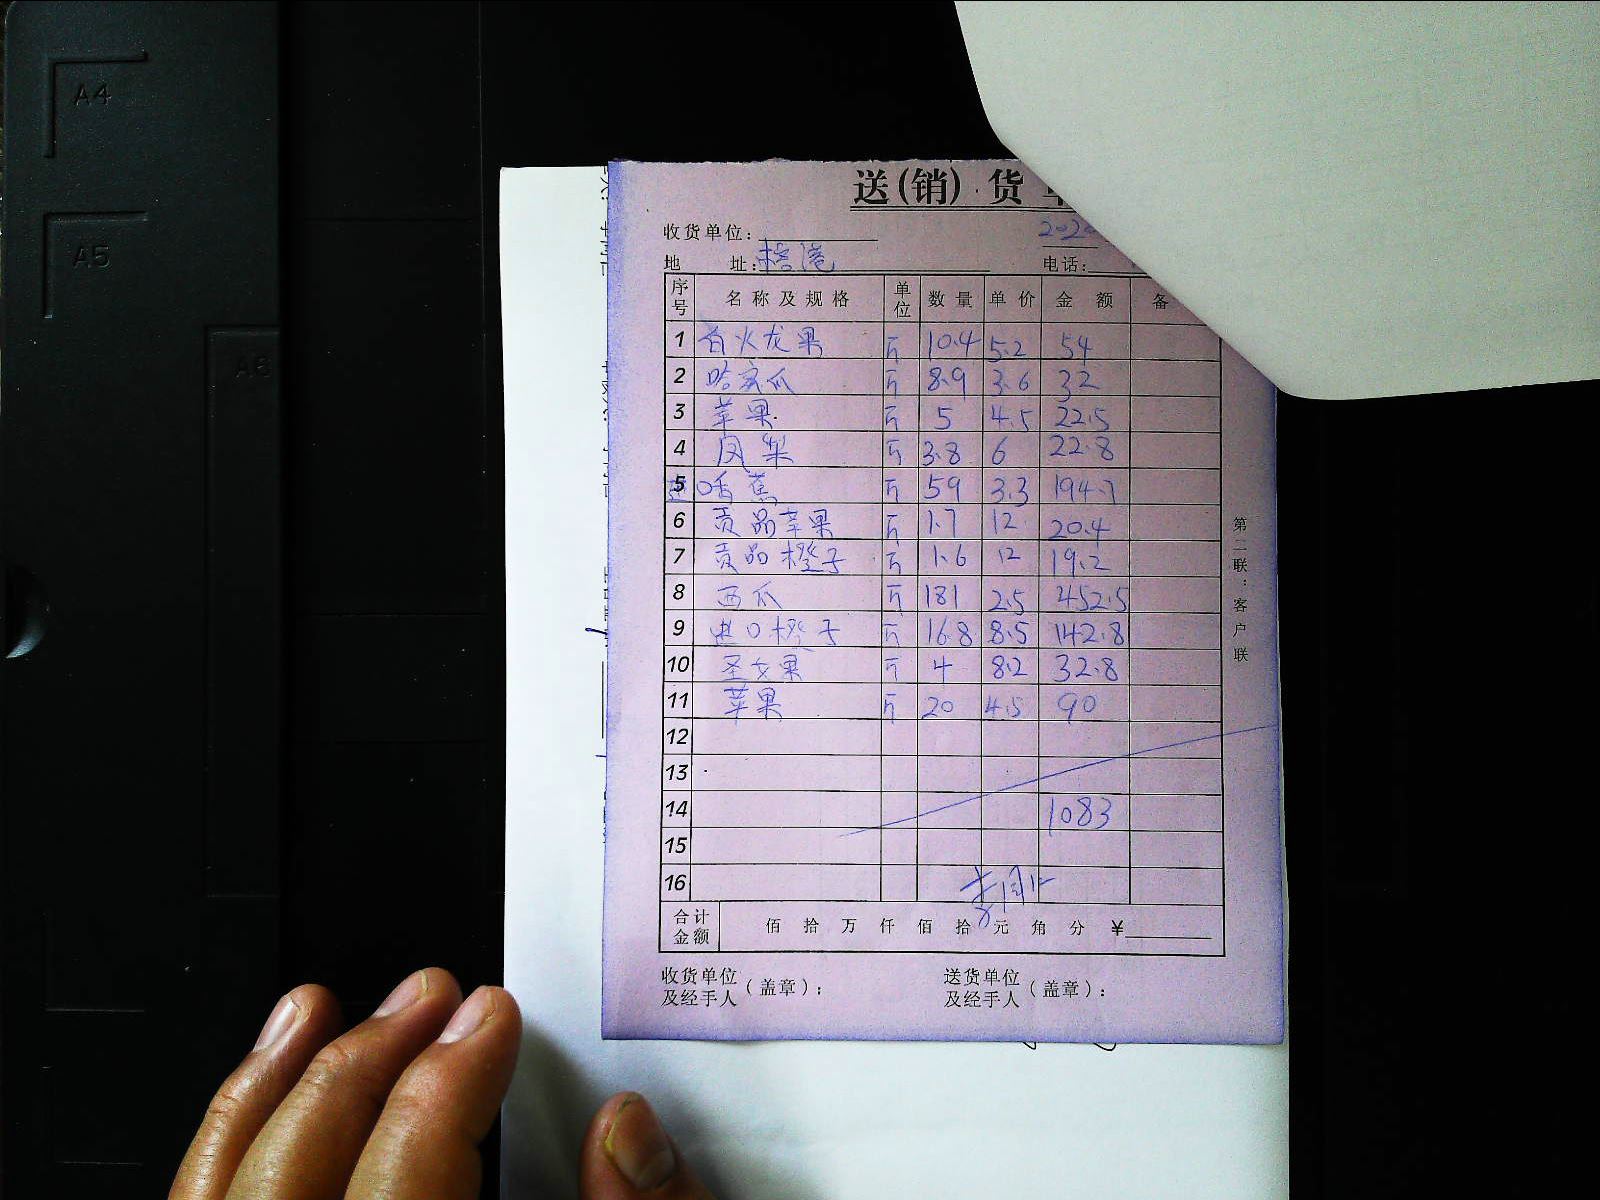 A4
A5
A6
送(销)货单
收货单位:
2020
地 址:
电话:
序号 名称及规格 单位 数量 单价 金额 备
1 白火龙果 斤 10.4 5.2 54
2 哈密瓜 斤 8.9 3.6 32
3 苹果 斤 5 4.5 22.5
4 凤梨 斤 3.8 6 22.8
5 进口香蕉 斤 59 3.3 194.7
6 贡品苹果 斤 1.7 12 20.4
7 贡品橙子 斤 1.6 12 19.2
8 西瓜 斤 181 2.5 452.5
9 进口橙子 斤 16.8 8.5 142.8
10 圣女果 斤 4 8.2 32.8
11 苹果 斤 20 4.5 90
12
13
14 1083
15
16
合计金额 佰 拾 万 仟 佰 拾 元 角 分 ¥
收货单位及经手人(盖章):
送货单位及经手人(盖章):
第二联:客户联